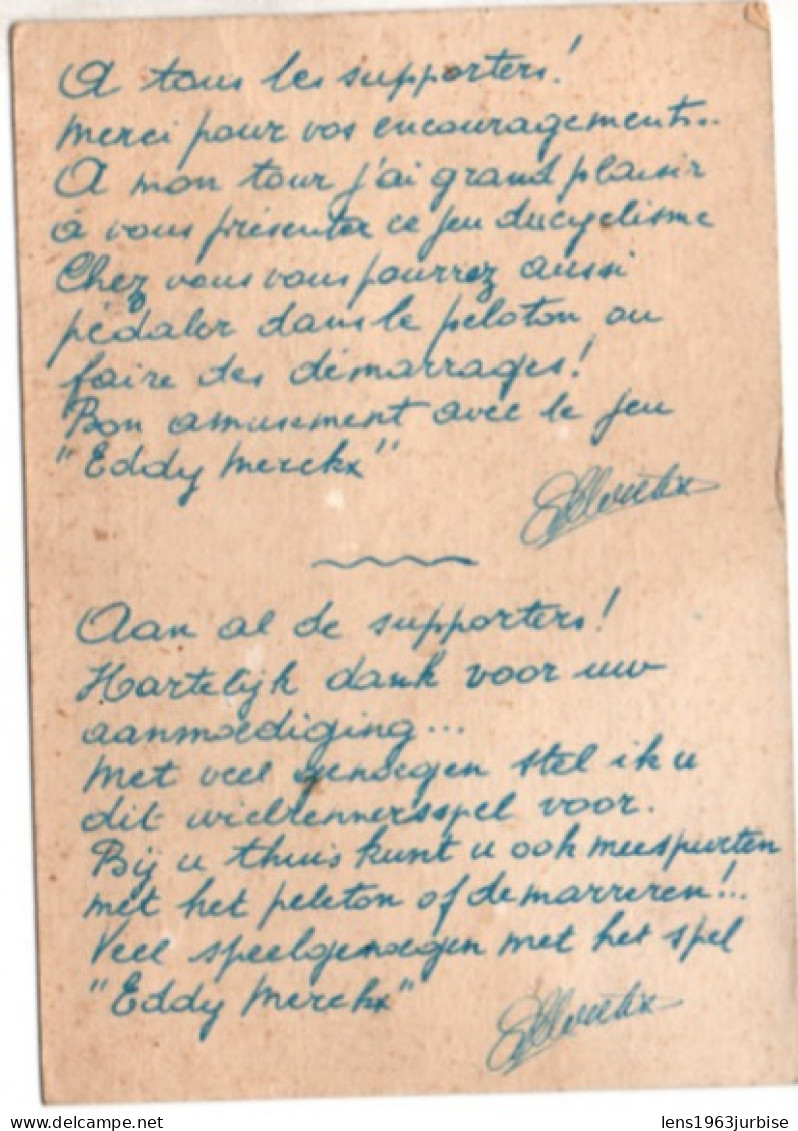 A tous les supporters!
Merci pour vos encouragements..
A mon tour j'ai grand plaisir
à vous présenter ce jeu du cyclisme
Chez vous vous pourrez aussi
pédaler dans le peloton ou
faire des démarrages!
Bon amusement avec le jeu
"Eddy Merckx"
Aan al de supporters!
Hartelijk dank voor uw
aanmoediging...
Met veel genoegen stel ik u
dit wielrennersspel voor.
Bij u thuis kunt u ook meespurten
met het peleton of demarreren!..
Veel speelgenoegen met het spel
"Eddy Merckx"
lens1963jurbise